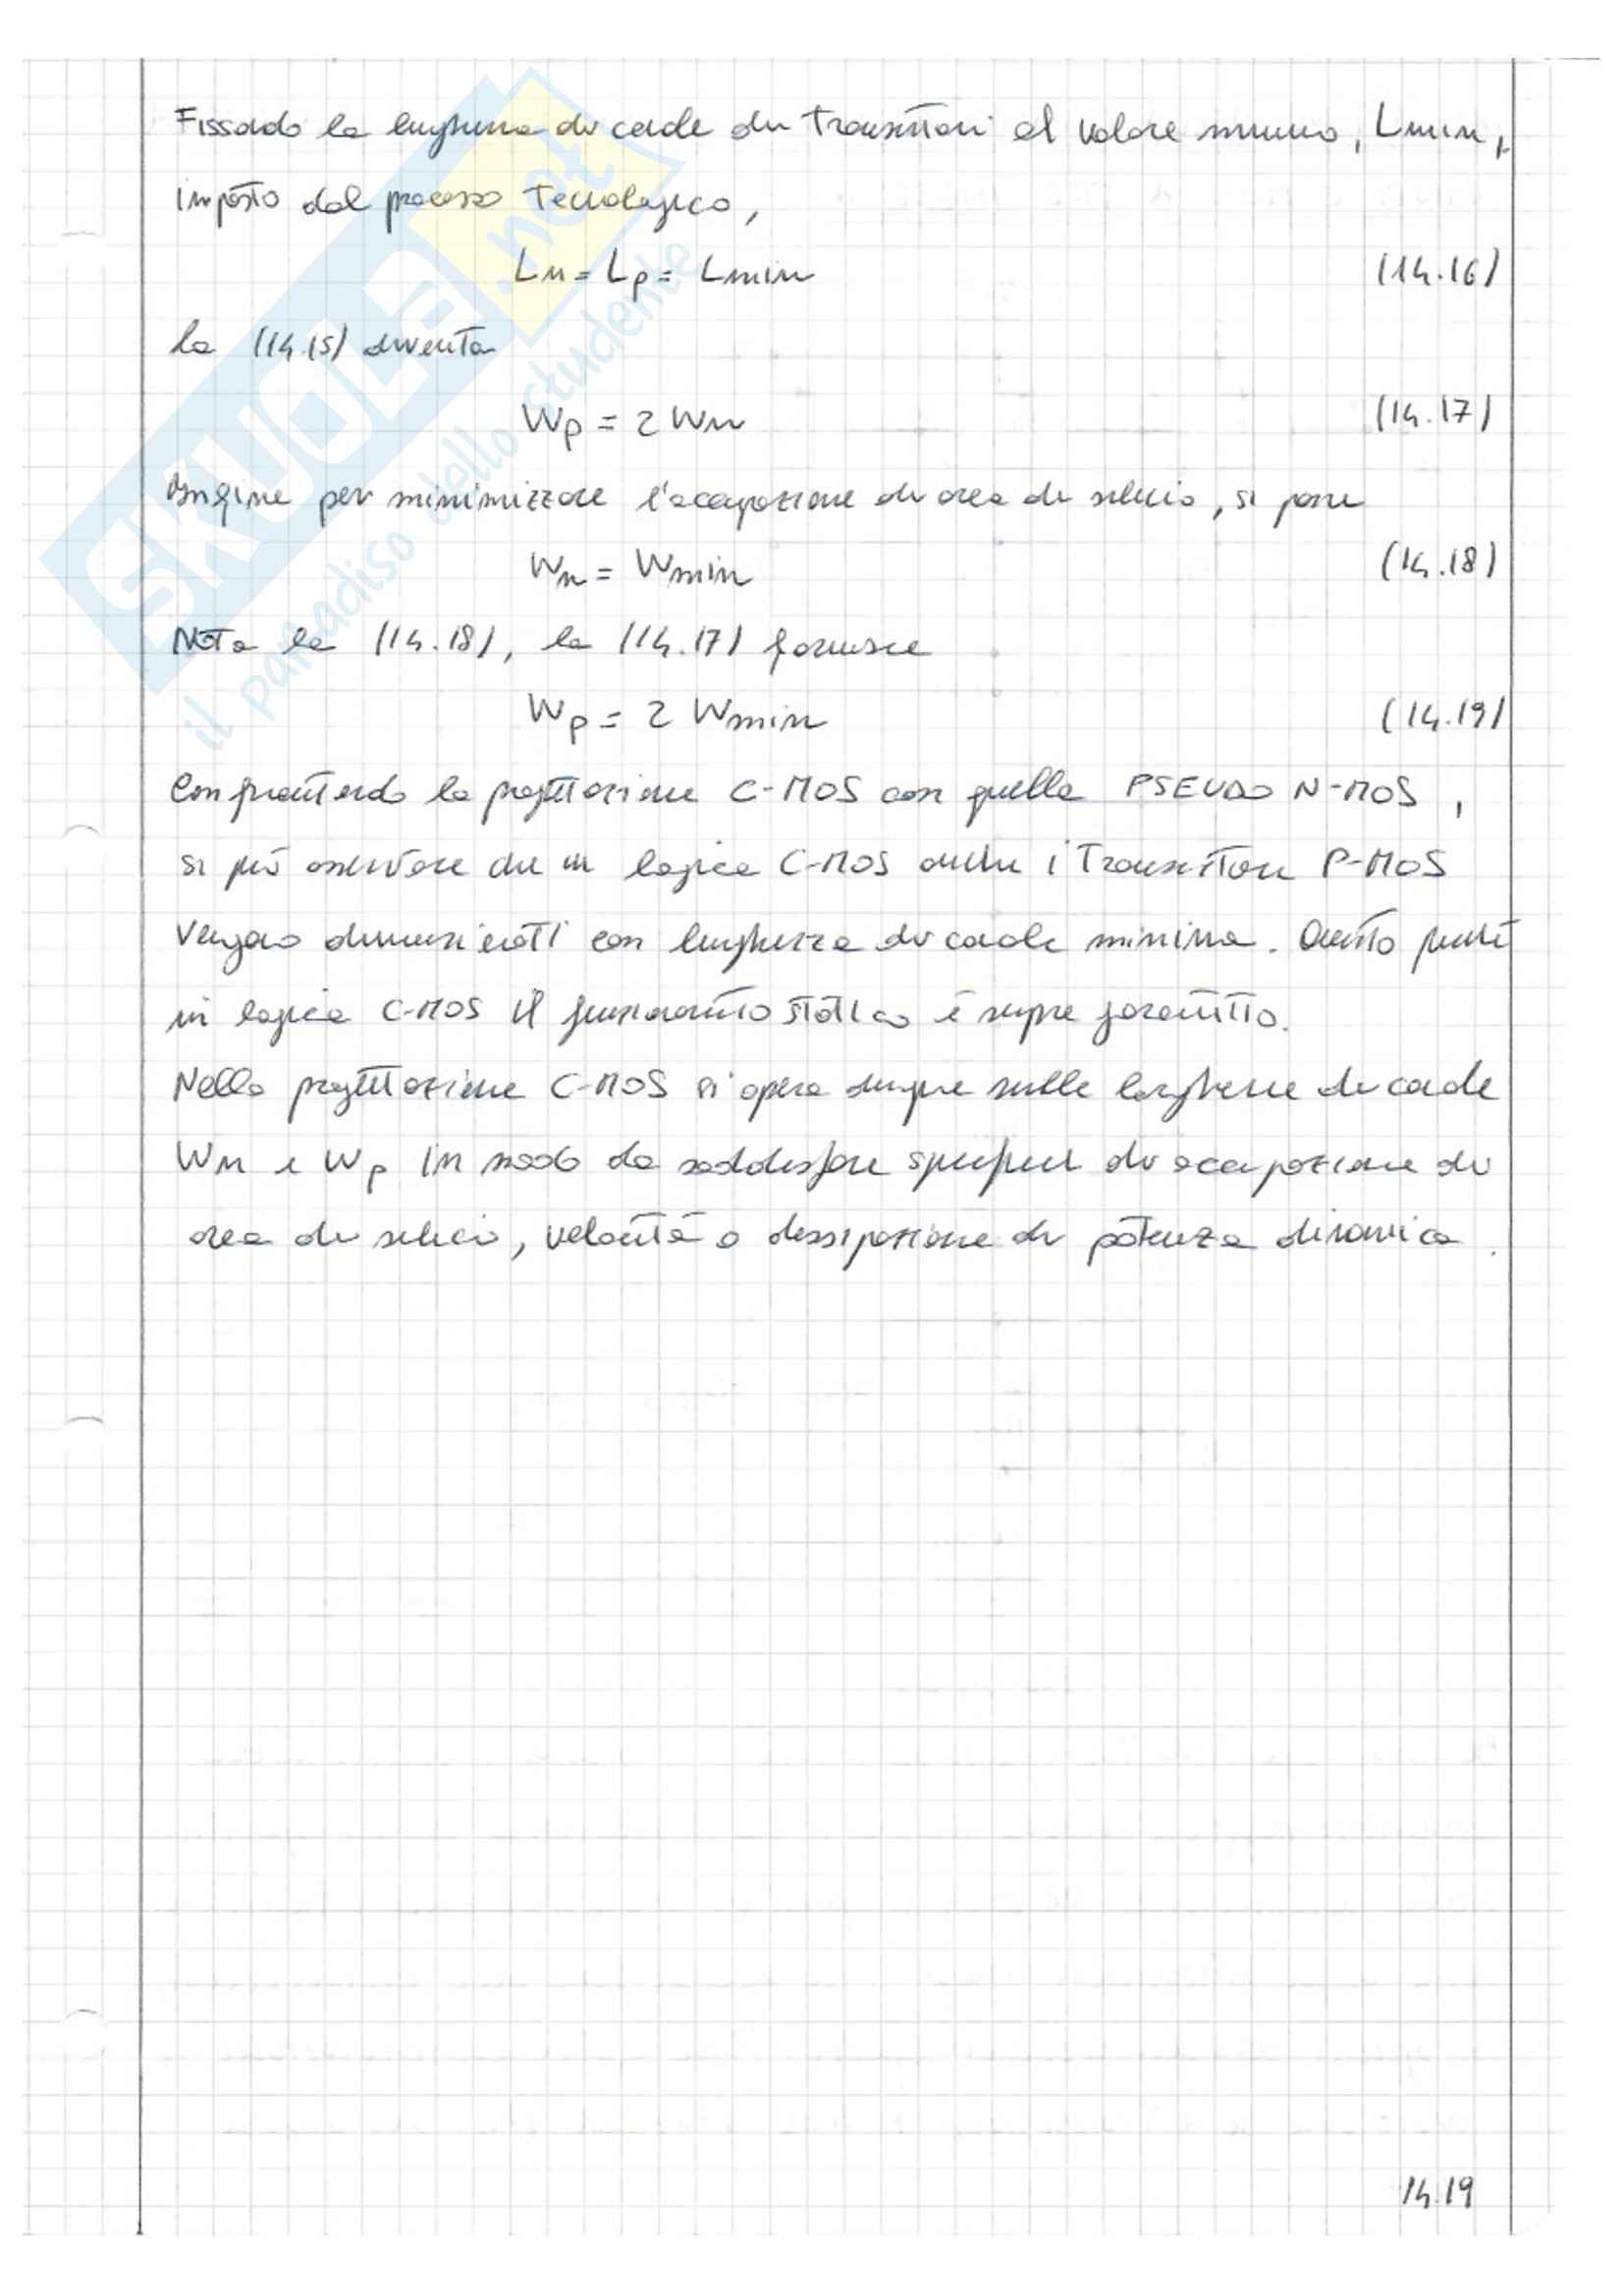 Fissando la lunghezza di canale dei transistori al valore minimo, Lmin,
imposto dal processo tecnologico,
Ln = Lp = Lmin (14.16)
la (14.15) diventa
Wp = 2 Wn (14.17)
Infine per minimizzare l'occupazione di area di silicio, si pone
Wn = Wmin (14.18)
Nota la (14.18), la (14.17) fornisce
Wp = 2 Wmin (14.19)
Confrontando la progettazione C-MOS con quella PSEUDO N-MOS,
si può osservare che in logica C-MOS anche i transistori P-MOS
vengono dimensionati con lunghezza di canale minima. Questo perché
in logica C-MOS il funzionamento statico è sempre garantito.
Nella progettazione C-MOS si opera dunque sulle larghezze di canale
Wn e Wp in modo da soddisfare specifiche di occupazione di
area di silicio, velocità o dissipazione di potenza dinamica.
14.19
SKUOLA.net
il paradiso dello studente